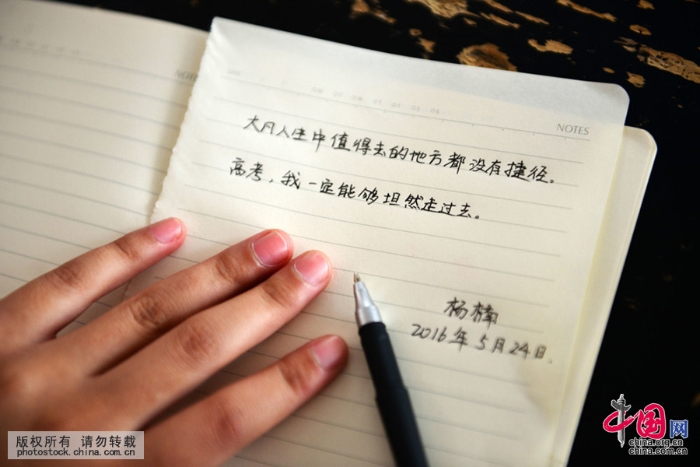 NOTES
大凡人生中值得去的地方都没有捷径。
高考，我一定能够坦然走过去。
杨楠
2016年5月24日.
版权所有 请勿转载
photostock.china.com.cn
中国网
china.org.cn
china.com.cn